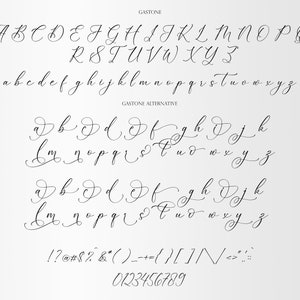 GASTONE
A B C D E F G H I J K L M N O P Q
R S T U V W X Y Z
a b c d e f g h i j k l m n o p q r s t u v w x y z
GASTONE ALTERNATIVE
a b c d e f g h i j k
l m n o p q r s t u v w x y z
a b c d e f g h i j k
l m n o p q r s t u v w x y z
0123456789